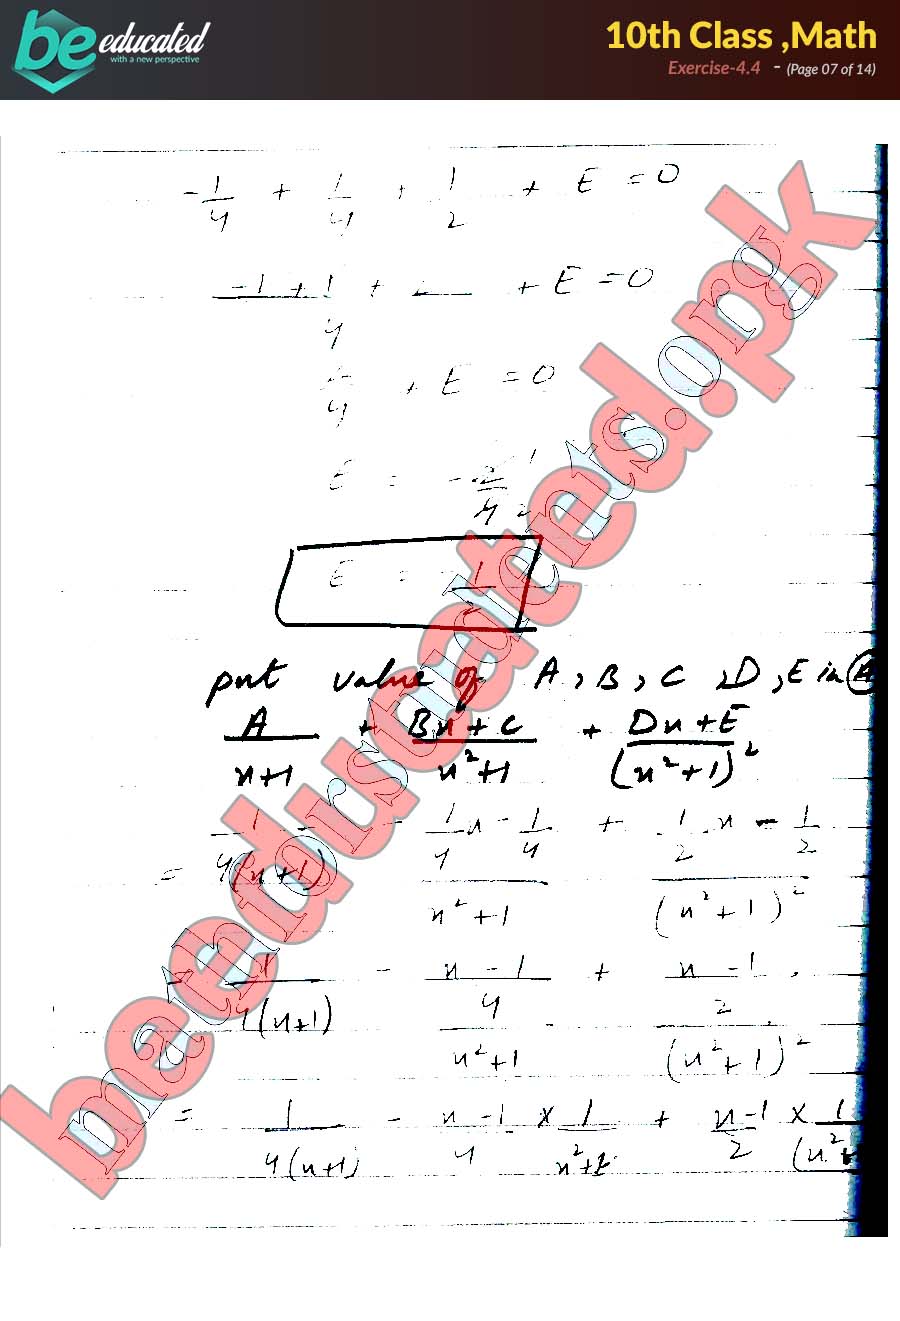 be educated
with a new perspective
10th Class ,Math
Exercise-4.4 - (Page 07 of 14)
-1/4 + 1/4 + 1/2 + E = 0
-1+1/4 + + E = 0
/4 + E = 0
E = -2/4 1 2
E = - 1/2
put value of A, B, C, D, E in
A/x+1 + Bx+C/x²+1 + Dx+E/(x²+1)²
= 1/4(x+1) - 1/4 x - 1/4 / x²+1 + 1/2 x - 1/2 / (x²+1)²
= 1/4(x+1) - x-1/4 / x²+1 + x-1/2 / (x²+1)²
= 1/4(x+1) - x-1/4 × 1/x²+1 + x-1/2 × 1/(x²+
beeducated.pk